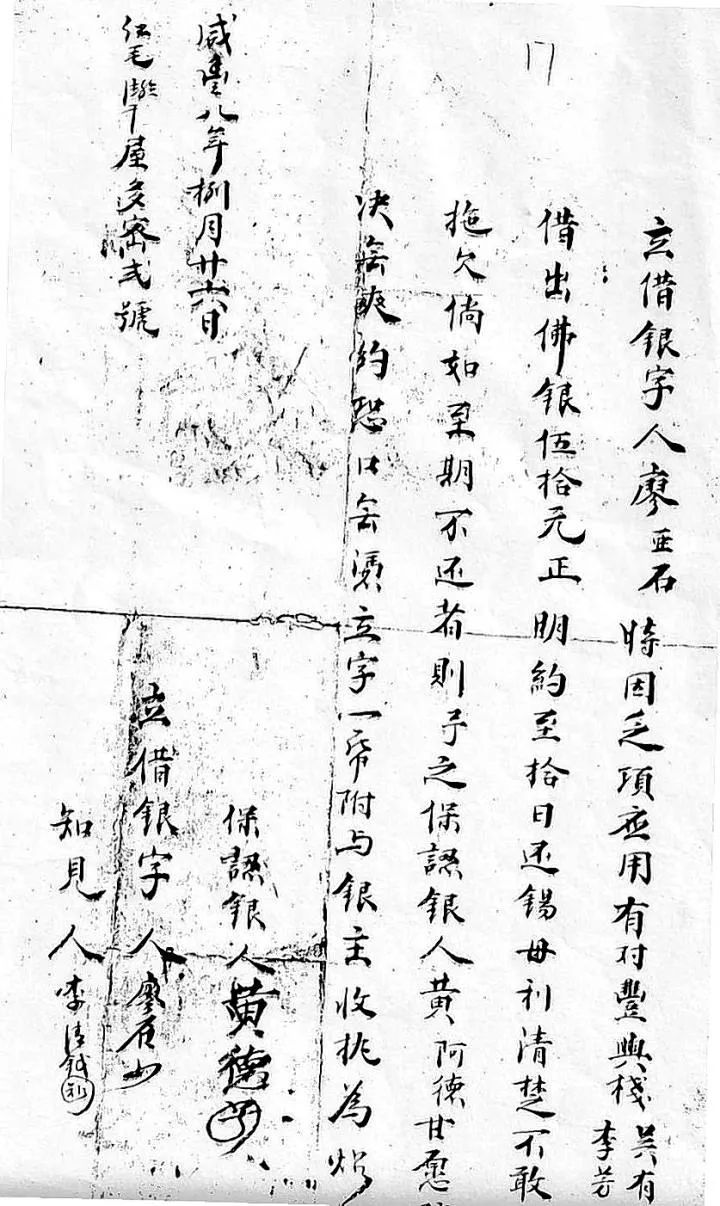 17
立借銀字人廖亜石時因乏項应用有対豐興棧吴有
李芳
借出佛銀伍拾元正明約至拾日还錫母利清楚不敢
拖欠倘如至期不还者則予之保認銀人黄阿德甘愿
决無爽約恐口無憑立字一帋附与銀主收执為炤
保認銀人黄德
立借銀字人廖石
知見人李清
咸豐八年捌月廿六日
屋多密弍號